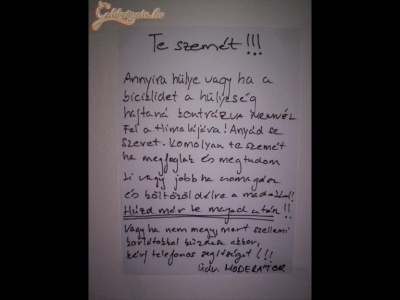 Te szemét!!!
Annyira hülye vagy ha a
biciklidet a hülyeség
hajtaná kontrázva mennél
Fel a Himalájára! Anyád se
szeret. Komolyan te szemét
ha megfoglak és megtudom
ki vagy jobb ha csomagolsz
és költözöl délre a madakkal!
Húzd már le magad után!!
Vagy ha nem megy, mert szellemi
korlátokkal küzdesz akkor,
kérj telefonos segítséget!!!
Üdv. MODERÁTOR